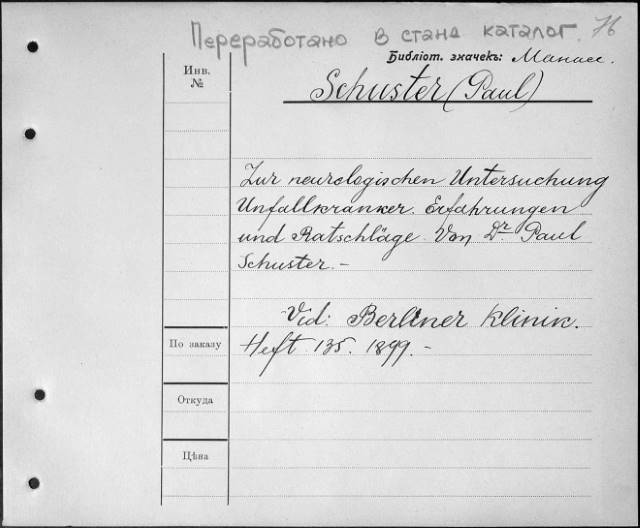 Переработано в станд каталог. 76
Библіот. значекъ: Манасс.
Инв. №
Schuster (Paul)
Zur neurologischen Untersuchung
Unfallkranker. Erfahrungen
und Ratschläge. Von Dr. Paul
Schuster. –
Vid: Berliner Klinik.
По заказу
Heft 135. 1899. –
Откуда
Цѣна